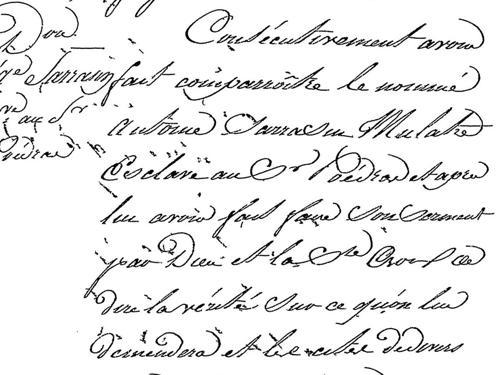 Consécutivement avoir
fait comparroitre le nommé
Antoine Sarrasin Mulatre
Esclave au Sr Poëdras et apres
lui avoir fait faire son serment
par Dieu et la Ste Croix de
dire la vérité sur ce qu'on lui
demendera et les